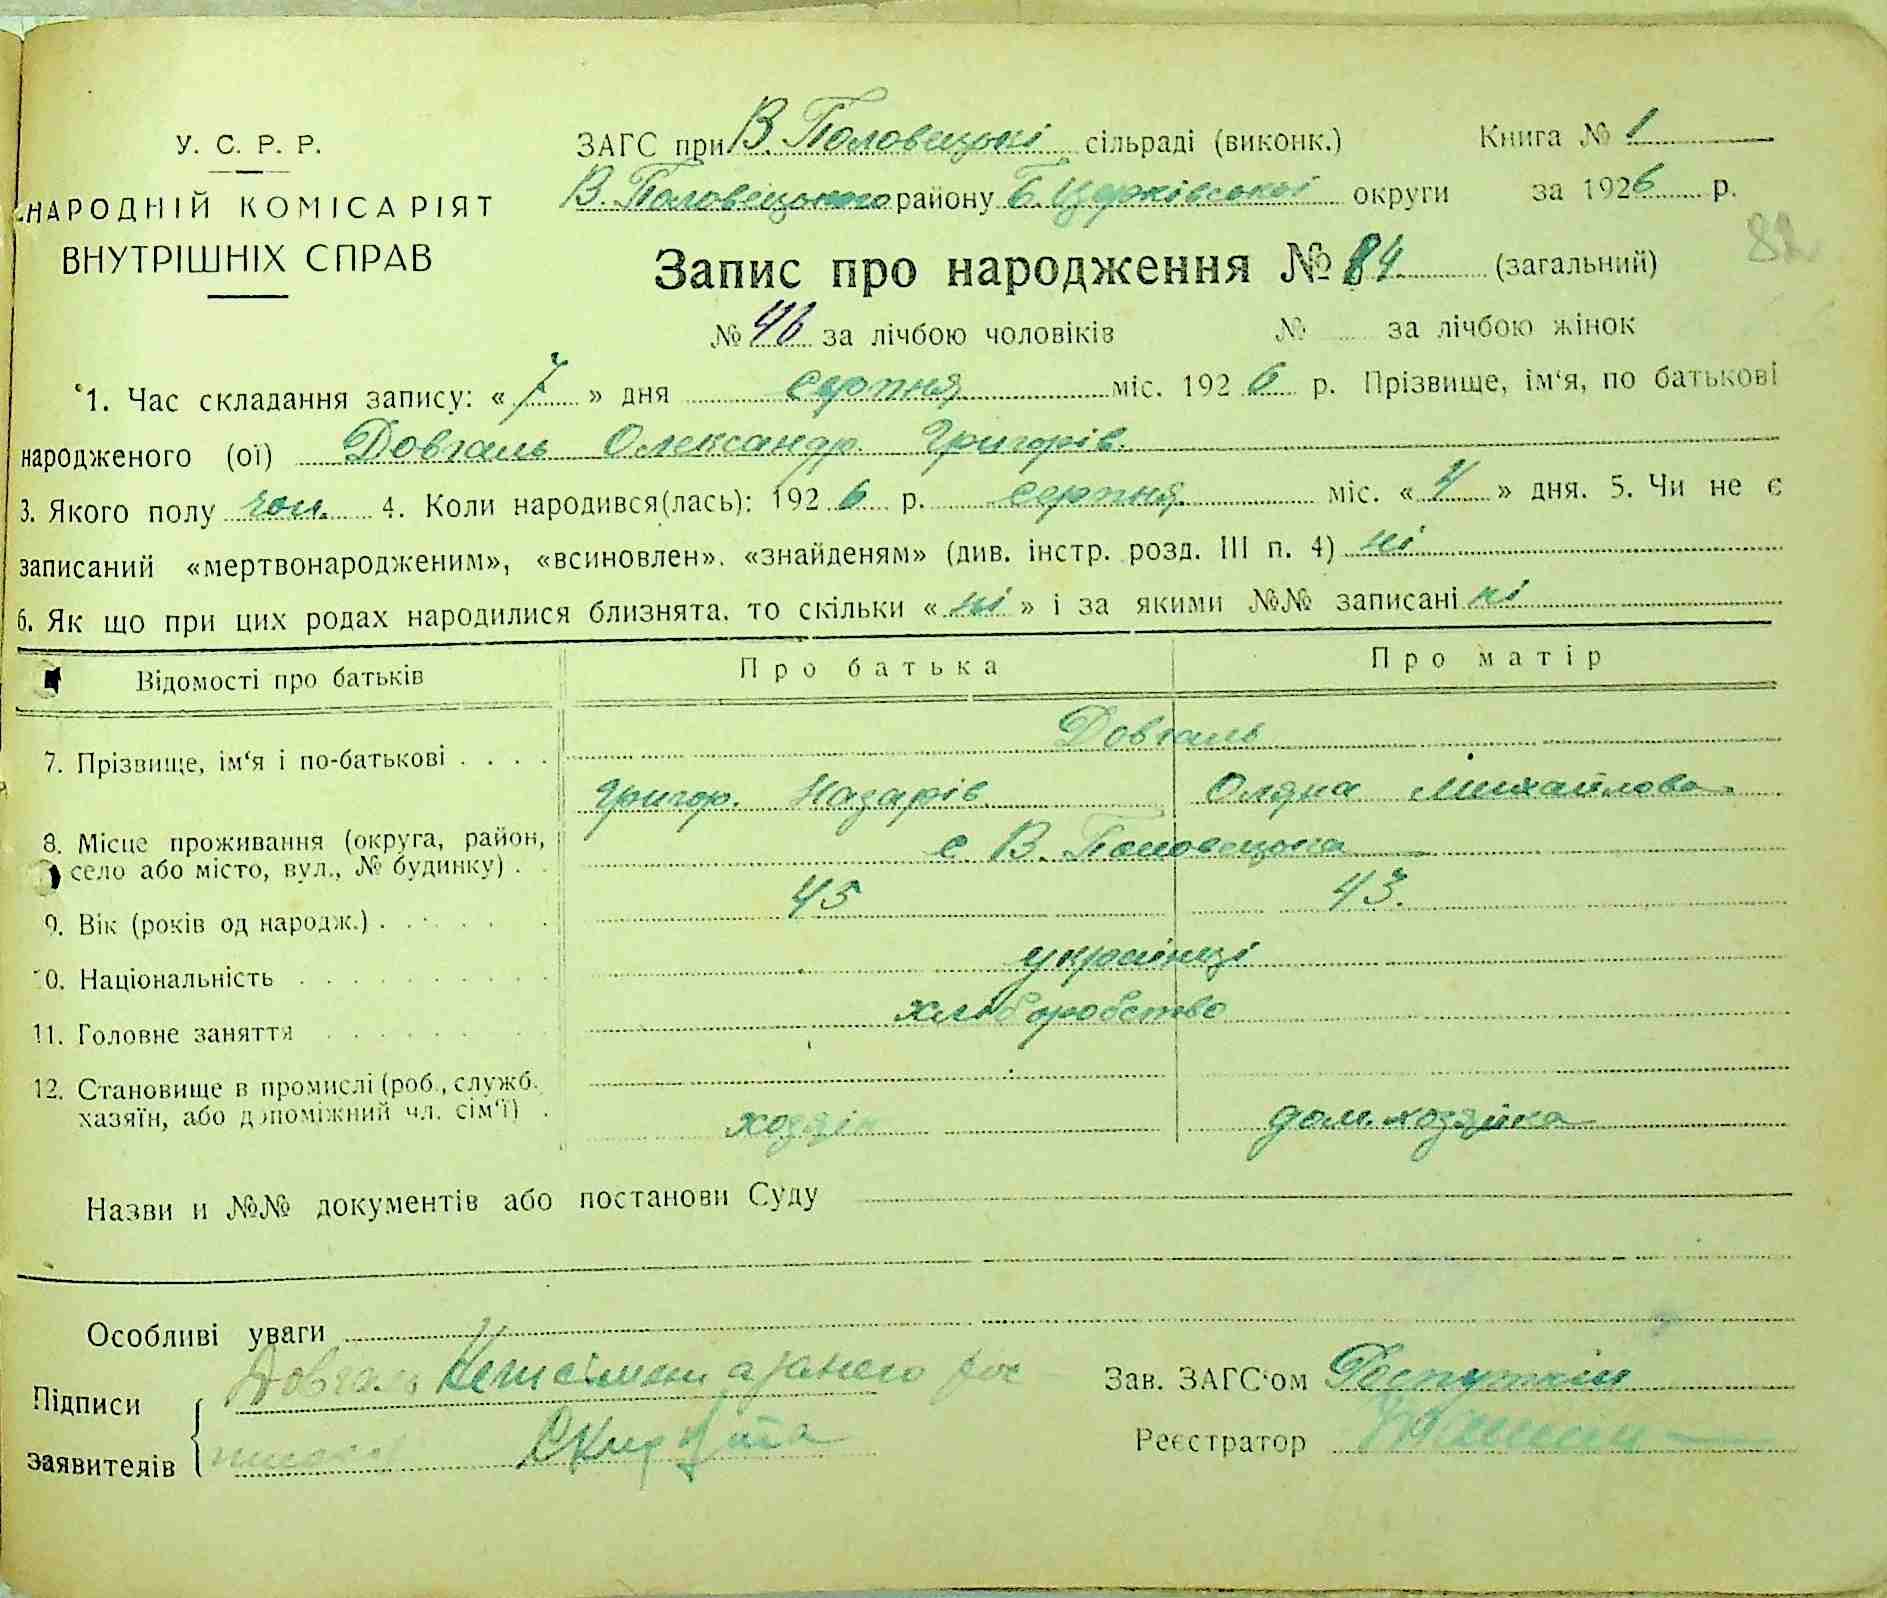 У. С. Р. Р.
НАРОДНІЙ КОМІСАРІЯТ
ВНУТРІШНІХ СПРАВ
ЗАГС при В. Половецькі сільраді (виконк.) Книга № 1
В. Половецького району Б. Церківської округи за 1926 р.
82
Запис про народження № 84 (загальний)
№ 46 за лічбою чоловіків № за лічбою жінок
1. Час складання запису: « 7 » дня серпня міс. 1926 р. Прізвище, ім'я, по батькові
народженого (ої) Довгаль Олександр Григорів.
3. Якого полу чол. 4. Коли народився(лась): 1926 р. серпня міс. « 4 » дня. 5. Чи не є
записаний «мертвонародженим», «всиновлен». «знайденям» (див. інстр. розд. III п. 4) ні
6. Як що при цих родах народилися близнята, то скільки « ні » і за якими №№ записані ні
Відомості про батьків Про батька Про матір
7. Прізвище, ім'я і по-батькові . . . . Довгаль
Григор. Назарів Олена Михайлова
8. Місце проживання (округа, район,
село або місто, вул., № будинку) . . с В. Половецька
9. Вік (років од народж.) . . . . . 45 43.
10. Національність . . . . . . . . українці
11. Головне заняття . . . . . . хліборобство
12. Становище в промислі (роб., служб.
хазяїн, або допоміжний чл. сім'ї) . хозяін дом. хозяйка
Назви и №№ документів або постанови Суду
Особливі уваги
Підписи Довгаль
заявителів
Зав. ЗАГС'ом
Реєстратор